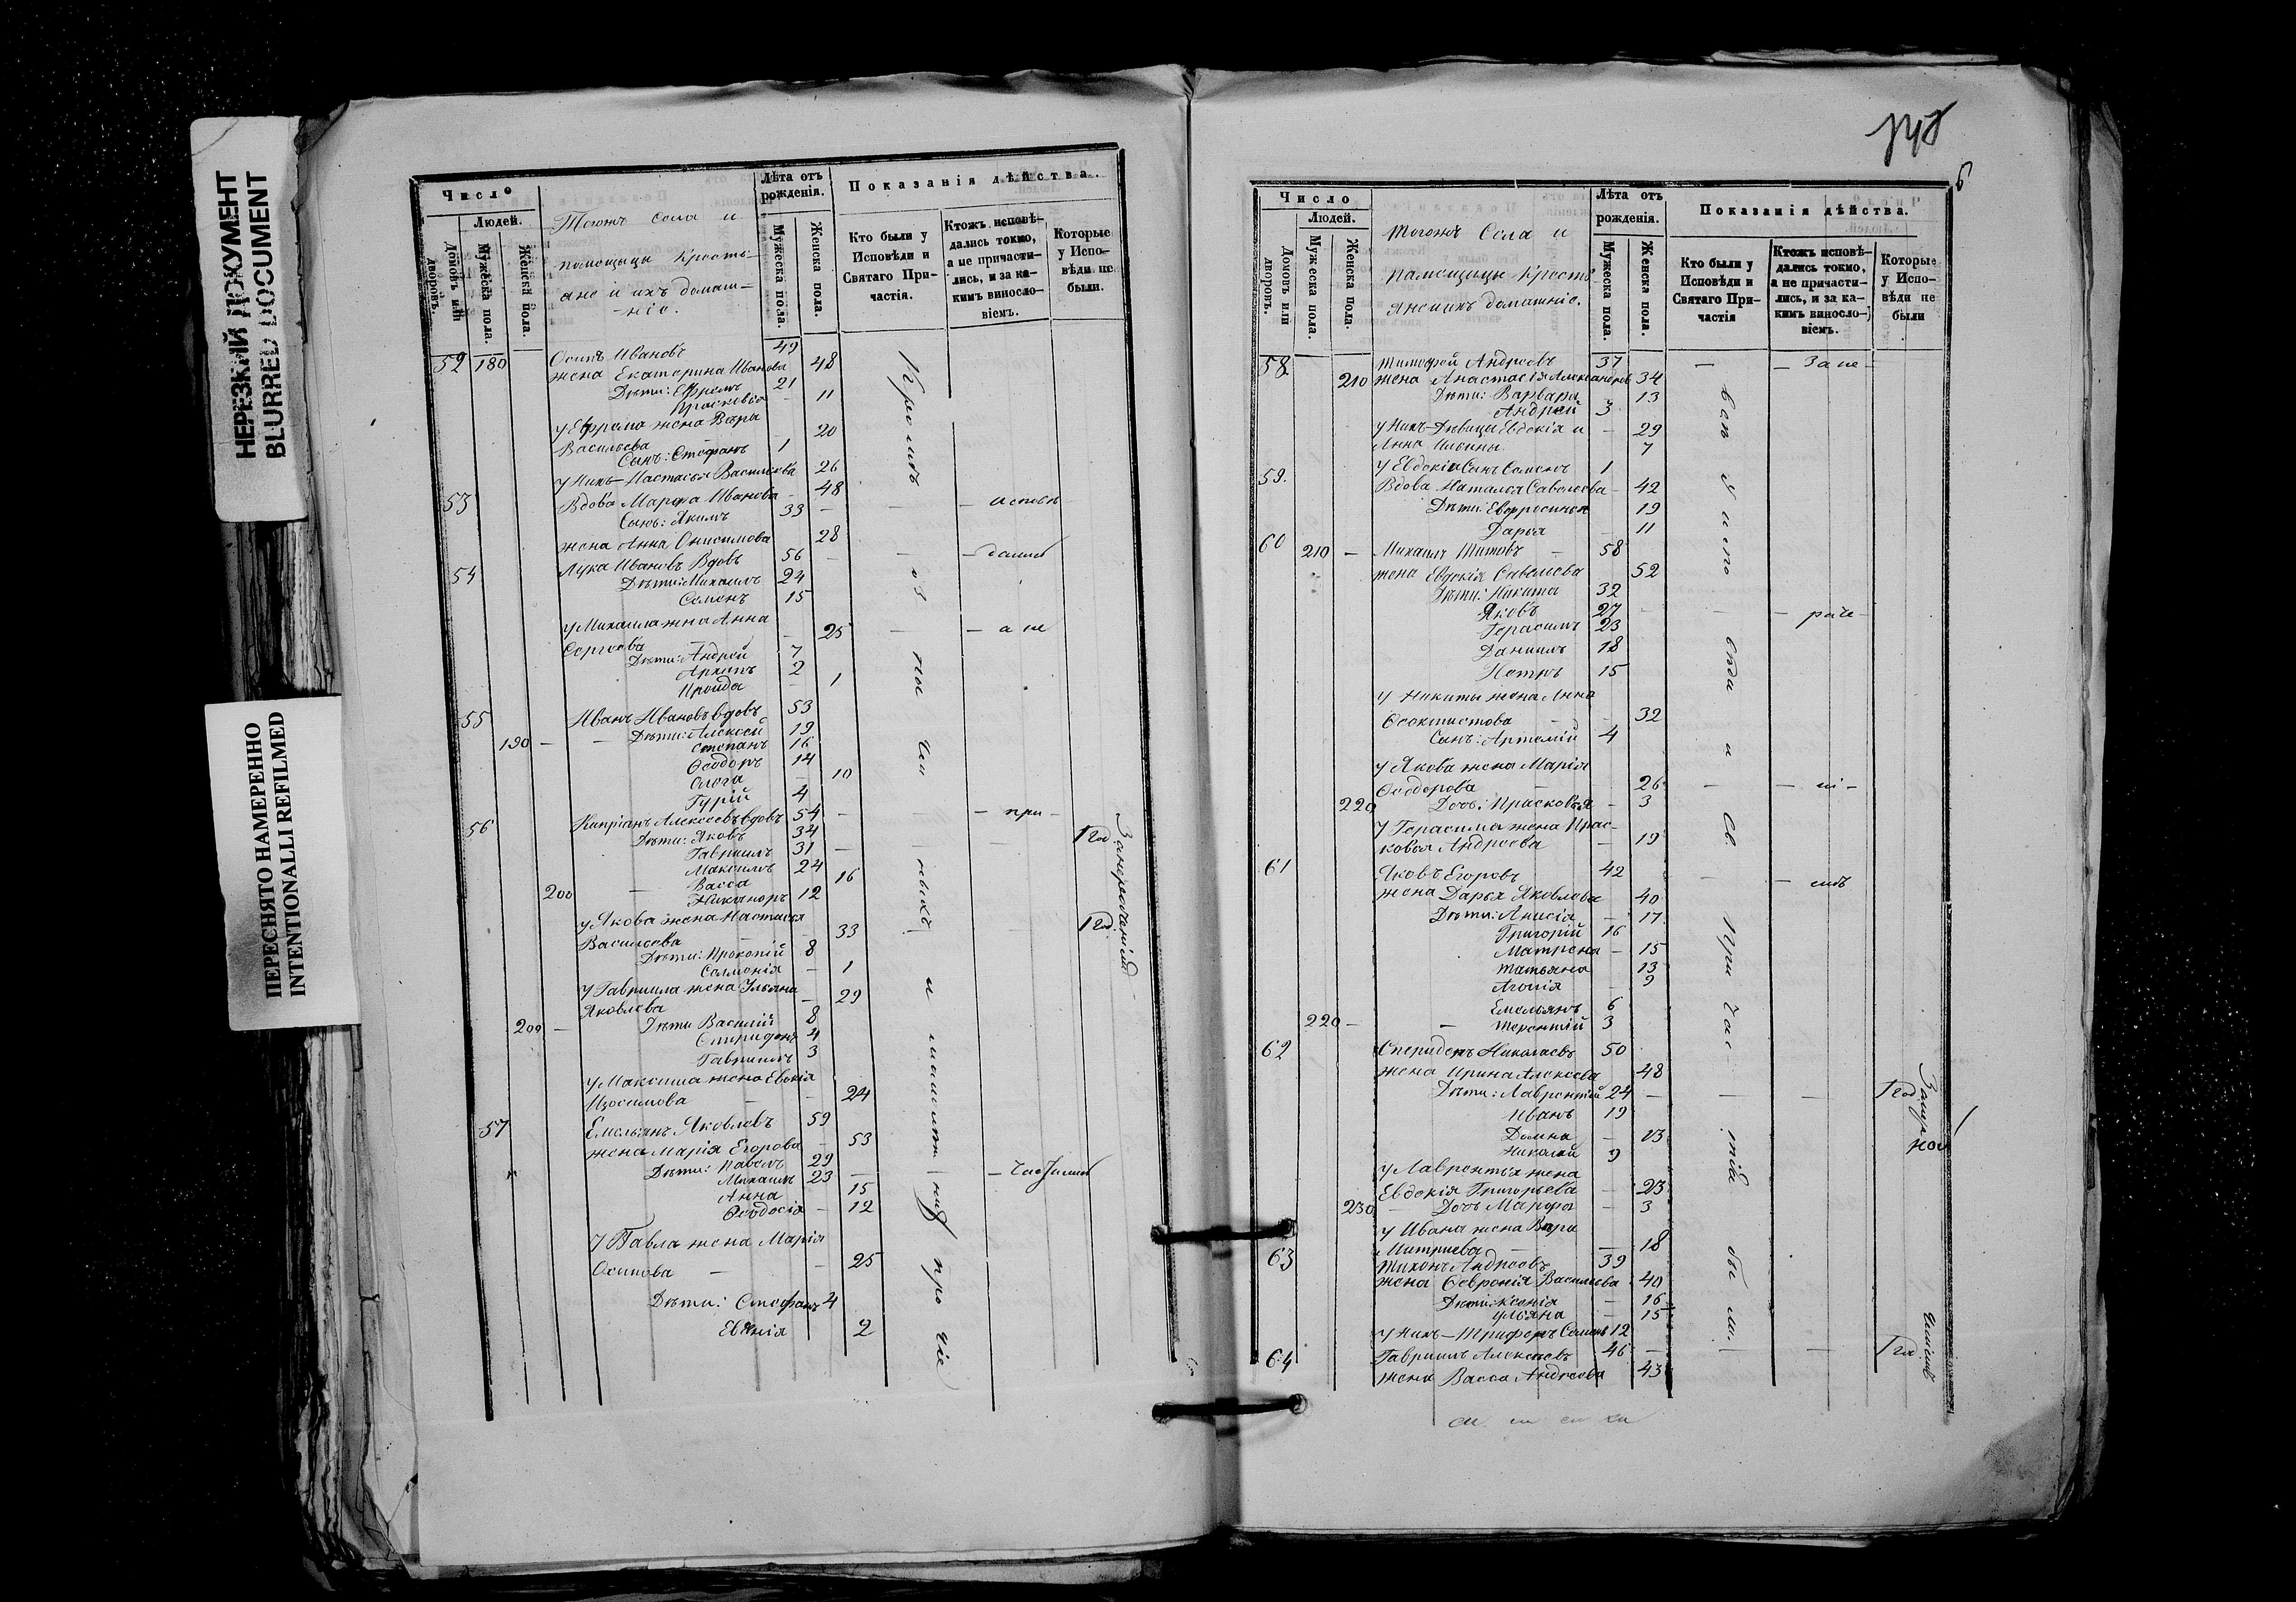 НЕРЕЗКИЙ ДОКУМЕНТ
BLURRED DOCUMENT
ПЕРЕСНЯТО НАМЕРЕННО
INTENTIONALLI REFILMED
Число
Людей.
Домовъ или дворовъ.
Мужеска пола.
Женска пола.
Тогожъ села и
помещицы кресть-
яне и ихъ домаш-
ніе.
Лѣта отъ рожденія.
Мужеска пола.
Женска пола.
Показанія дѣйства.
Кто были у Исповѣди и Святаго При-частія.
Ктожъ исповѣ-дались токмо, а не причасти-лись, и за ка-кимъ винословіемъ.
Которые у Испо-вѣди не были.
52 180 Осипъ Ивановъ 49
жена Екатерина Иванова 48
Дѣти: Ефремъ 21
Прасковія - 11
У Ефрема жена Вѣра
Васильева - 20
Сынъ: Стефанъ 1
У нихъ - Настасья Васильева 26
53 Вдова Марфа Иванова - 48
Сынъ: Якимъ 33
жена Анна Онисимова 28
54 Лука Ивановъ Вдовъ 56
Дѣти: Михаилъ 24
Семенъ 15
У Михаила жена Анна
Сергеева - 25
Дѣти: Андрей 7
Архипъ 2
Ироида - 1
55 Иванъ Ивановъ вдовъ 53
190 - Дѣти: Алексей 19
Степанъ 16
Ѳеодоръ 14
Ольга - 10
Гурій 4
56 Кипріанъ Алексеевъ вдовъ 54
Дѣти: Яковъ 34 1 год
Гавриилъ 31
Максимъ 24
Васса 16
200 Никаноръ 12
У Якова жена Настасья
Васильева - 33 1 год.
Дѣти: Прокопій 8
Саломонія - 1
У Гавриила жена Ульяна
Яковлева - 29
200 - Дѣти Василій 8
Спиридонъ 4
Гавриилъ 3
У Максима жена Евдокія
Изосимова - 24
57 Емельянъ Яковлевъ 59
жена Марія Егорова - 53
Дѣти: Павелъ 29
Михаилъ 23
Анна 15
Ѳеодосія - 12
У Павла жена Марія
Осипова - 25
Дѣти: Стефанъ 4
Евгенія 2
Кромѣ
прочіе
исповѣ
дались
а не
при
частились
148
6
Число
Людей.
Домовъ или дворовъ.
Мужеска пола.
Женска пола.
Тогожъ Села и
помещицы кресть
яне и ихъ домашніе.
Лѣта отъ рожденія.
Мужеска пола.
Женска пола.
Показанія дѣйства.
Кто были у Исповѣди и Святаго При-частія
Ктожъ исповѣ-дались токмо, а не причасти-лись, и за ка-кимъ винословіемъ.
Которые у Испо-вѣди не были
58 Тимофей Андреевъ 37
210 жена Анастасія Александрова 34
Дѣти: Варвара 13
Андрей 3
У нихъ - Дѣвицы Евдокія и - 29
Анна Ильины 7
У Евдокіи Сынъ Семенъ 1
59. Вдова Наталья Савельева - 42
Дѣти: Евфросинья 19
Дарья - 11
60 210 - Михаилъ Титовъ - 58
жена Евдокія Савельева 52
Дѣти: Никита 32
Яковъ 27
Герасимъ 23
Даниилъ 18
Петръ 15
У Никиты жена Анна
Ѳеоктистова - 32
Сынъ: Артемій 4
У Якова жена Марія
Ѳеодорова - 26
220 Дочь: Прасковья - 3
У Герасима жена Прас-
ковья Андреева - 19
61 Яковъ Егоровъ 42
жена Дарья Яковлева 40
Дѣти: Анисія - 17
Григорій 16
Матрена - 15
Татьяна 13
Агапія 9
Емельянъ 6
220 - Терентій 3
62 Спиридонъ Николаевъ 50
жена Ирина Алексеева 48
Дѣти: Лаврентій 24 - 1 год
Иванъ 19
Домна - 13
Николай 9
У Лаврентья жена
Евдокія Григорьева - 23
230 - Дочь Марфа - 3
У Ивана жена Вѣра
Митриева - 18
63 Тихонъ Андреевъ 39
жена Ѳевронія Васильева 40
Дѣти: Ксенія - 16
Ульяна 15
У нихъ - Трифонъ Семеновъ 12
64 Гавриилъ Алексеевъ 46 - 1 год
жена Васса Андреева 43
всѣ у испо вѣди и Св. При час тія бы ли.
За не
раче
ні
емъ